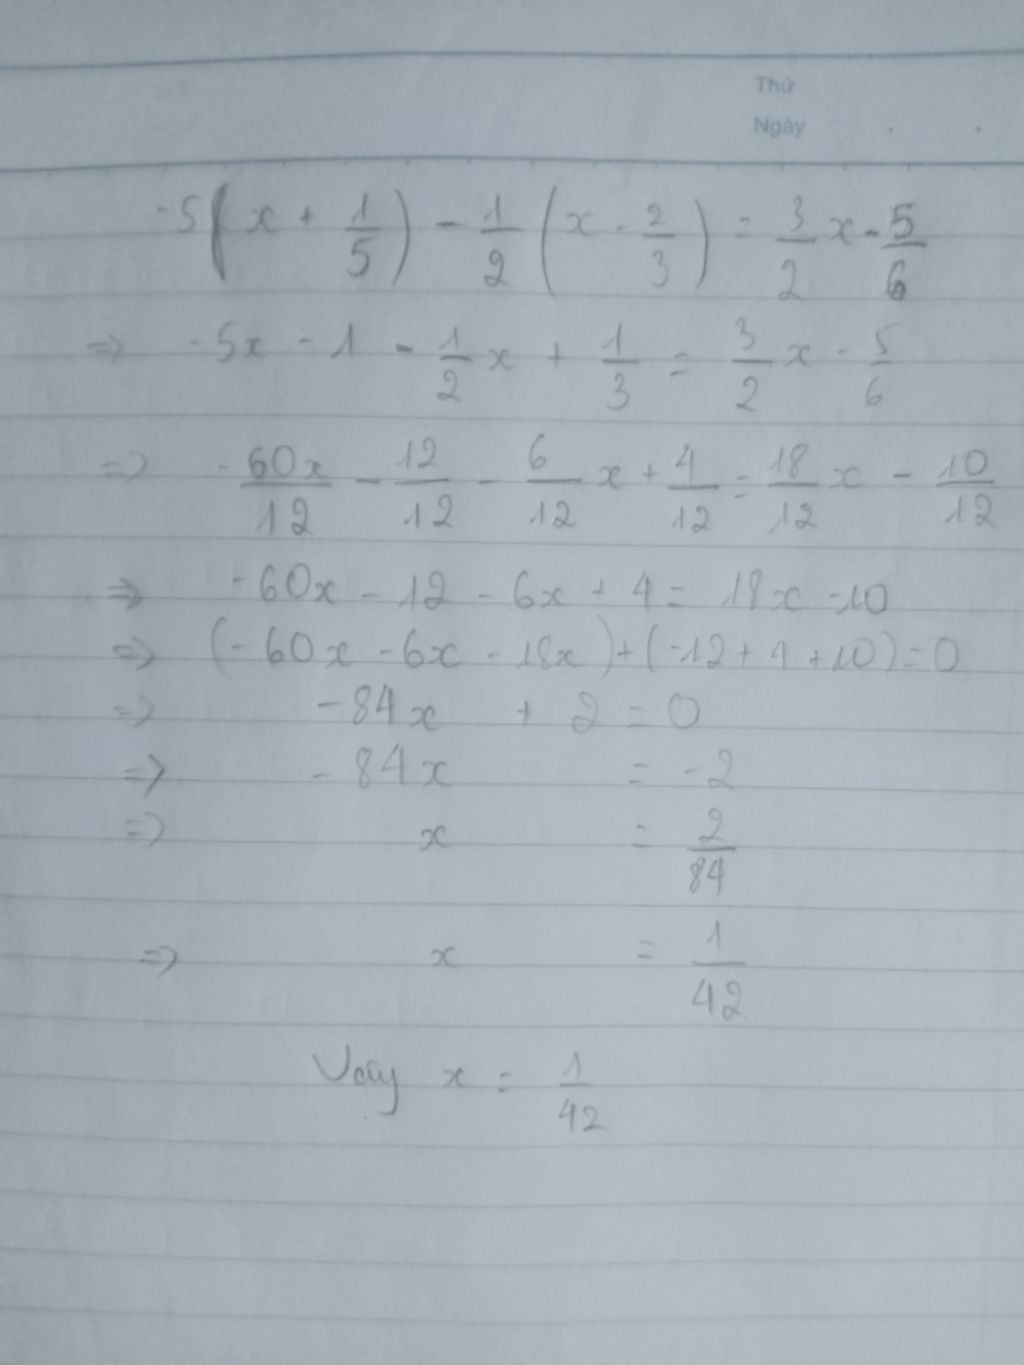 Thứ
Ngày
-5(x + 1/5) - 1/2 (x - 2/3) = 3/2 x - 5/6
=> -5x - 1 - 1/2 x + 1/3 = 3/2 x - 5/6
=> -60x/12 - 12/12 - 6/12 x + 4/12 = 18/12 x - 10/12
=> -60x - 12 - 6x + 4 = 18x - 10
=> (-60x - 6x - 18x) + (-12 + 4 + 10) = 0
=> -84x + 2 = 0
=> -84x = -2
=> x = 2/84
=> x = 1/42
Vậy x = 1/42